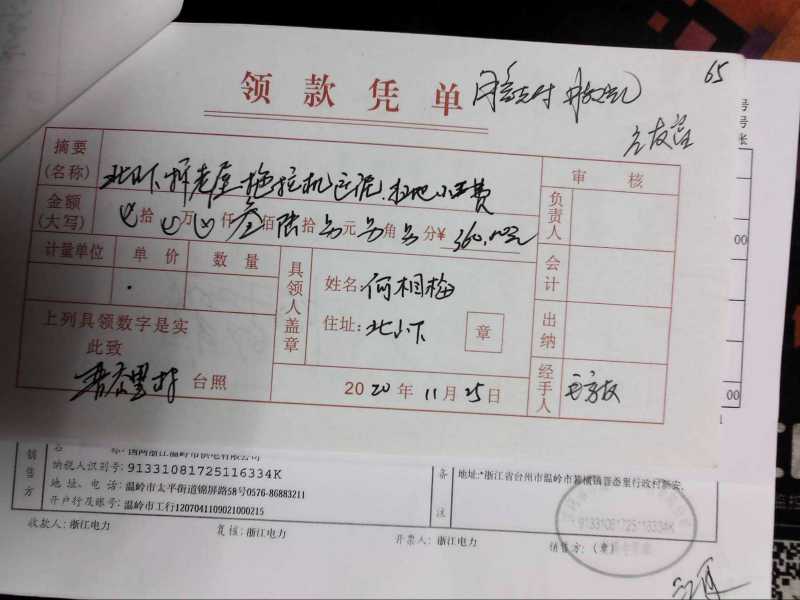 65
领款凭单 同意支付
摘要(名称) 北山下拆老屋拖拉机运泥,扫地小工费
审核
金额(大写) 拾 万 仟 叁佰 陆拾 元 角 分 ¥ 360.00元
负责人
计量单位 单价 数量
会计
具领人盖章
姓名:何相梅
住址:北山下 章
出纳
上列具领数字是实
此致
晋岙里村 台照
2020年11月25日
经手人
纳税人识别号:91331081725116334K
地址、电话:温岭市太平街道锦屏路58号0576-86883211
开户行及账号:温岭市工行1207041109021000215
销售方
备注
收款人:浙江电力 复核:浙江电力 开票人:浙江电力 销售方:(章)
91331081725116334K